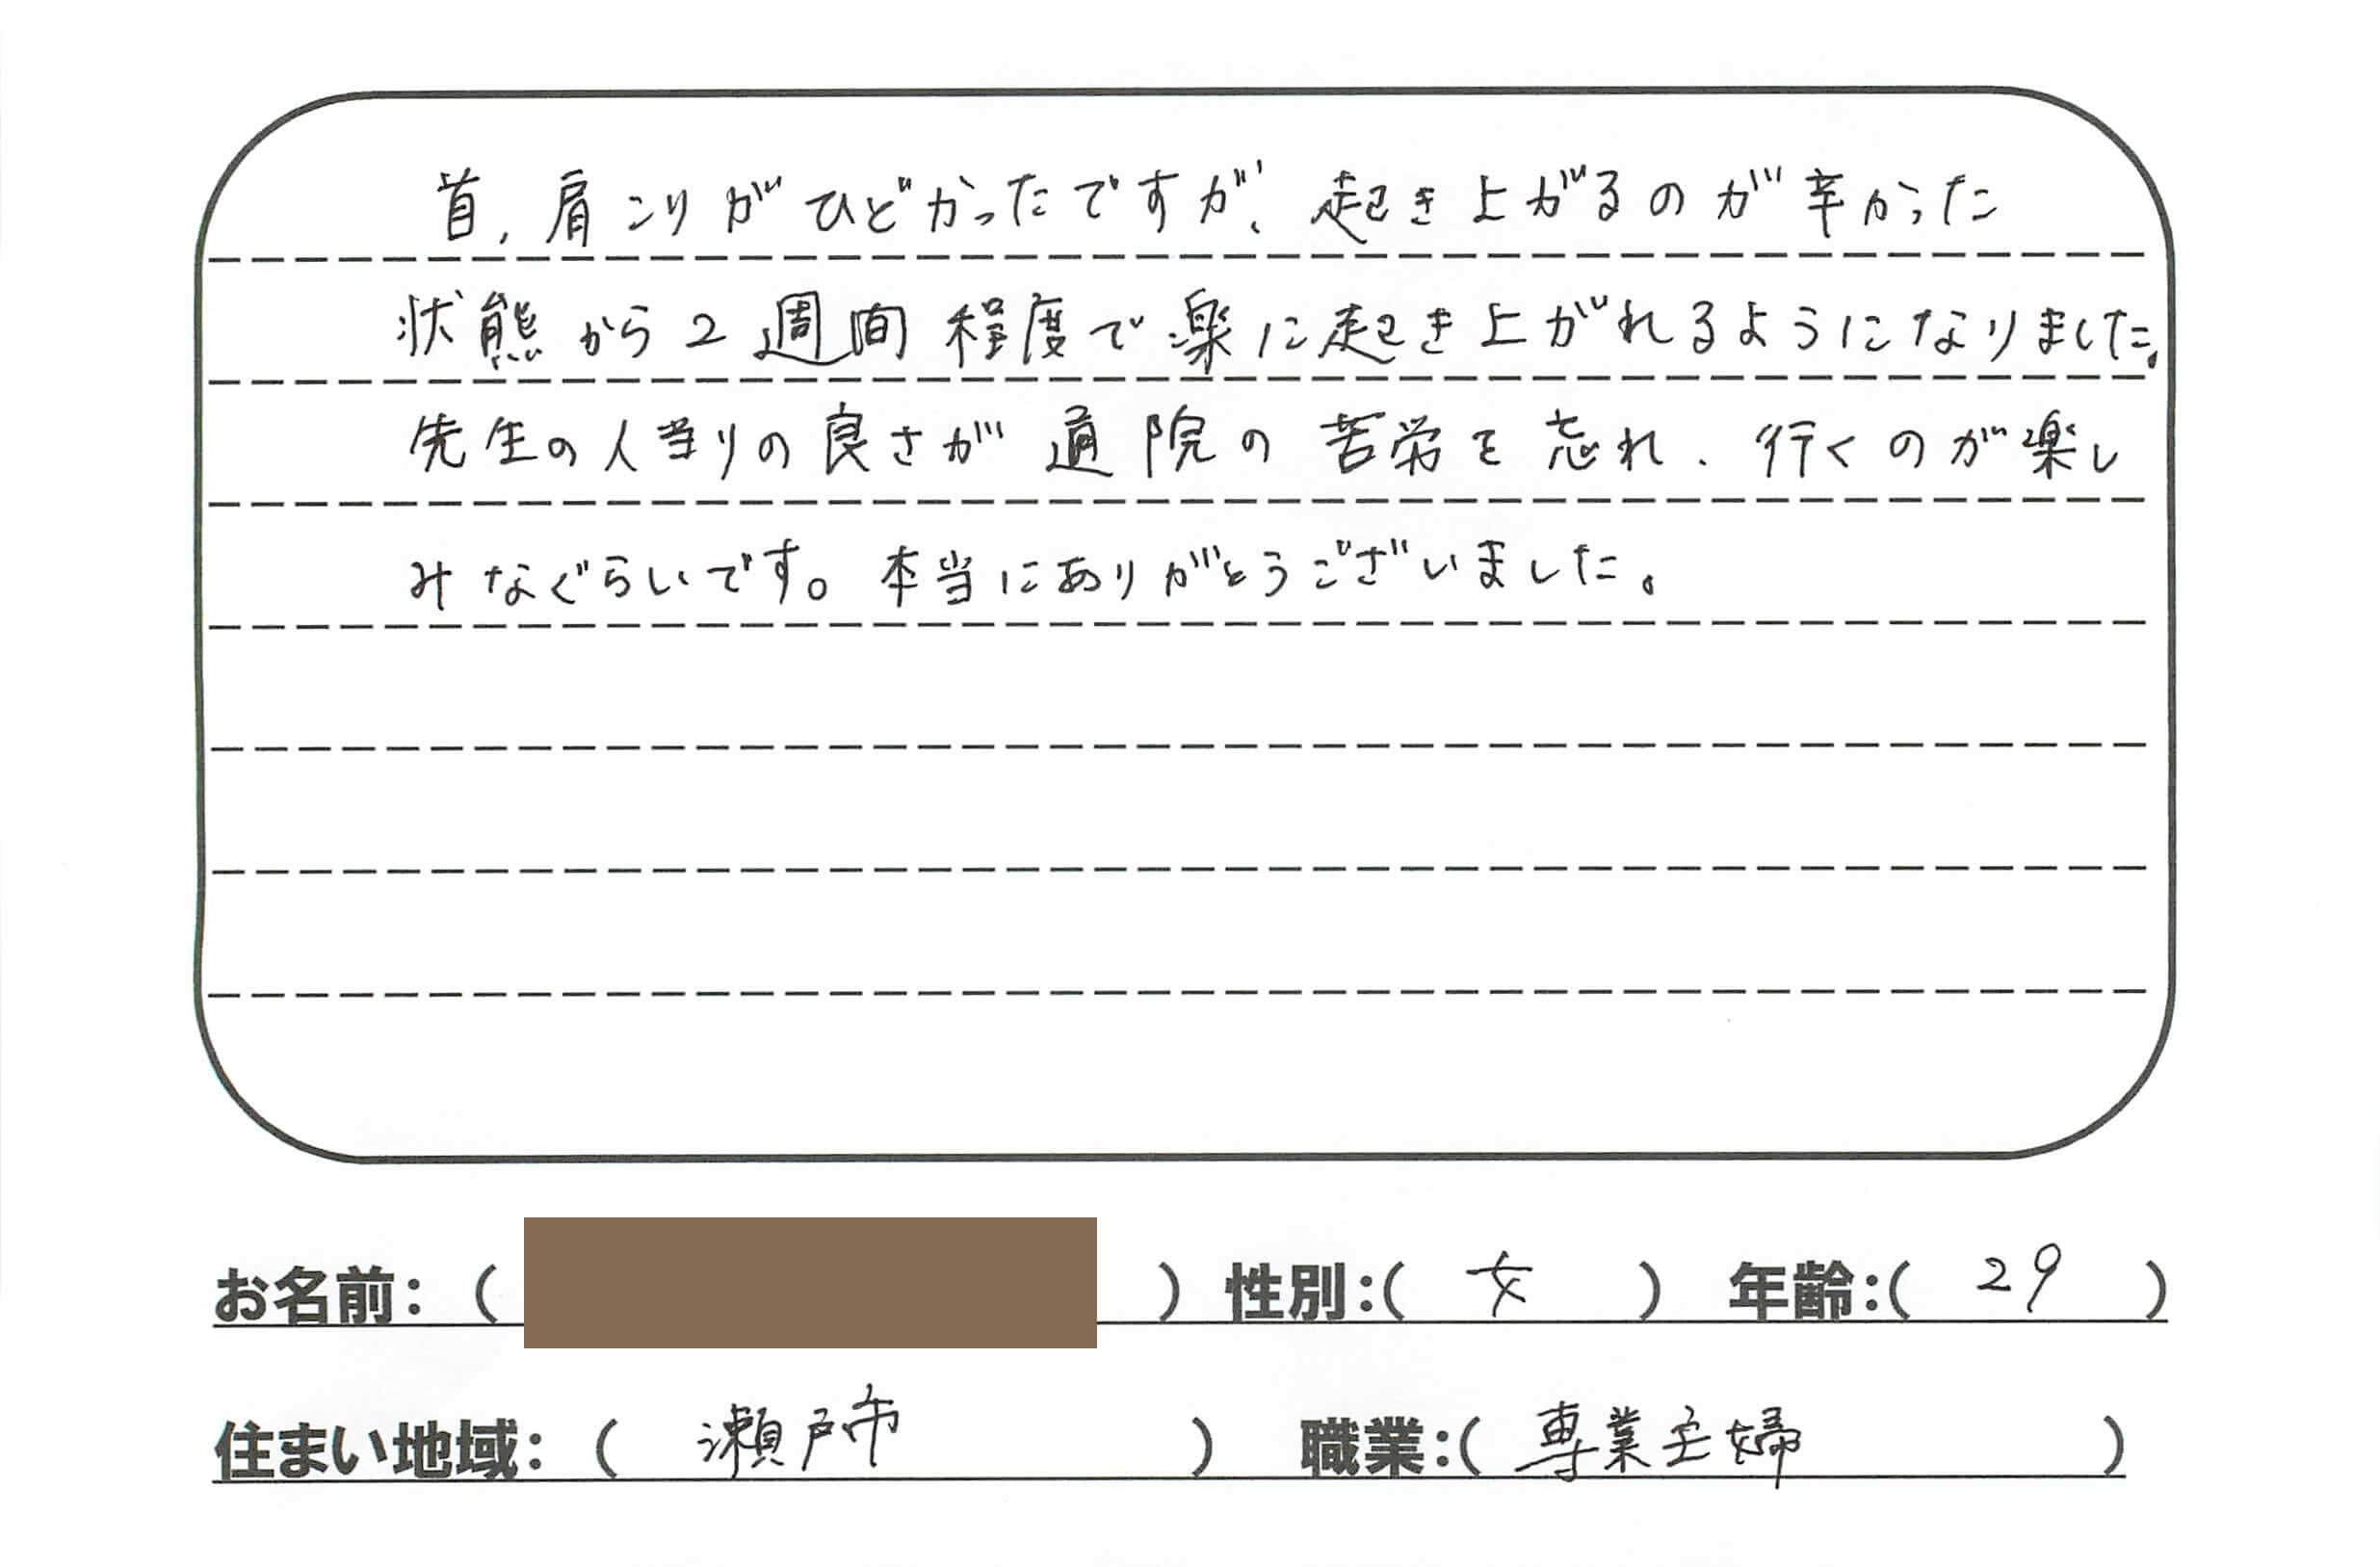 首、肩こりがひどかったですが、起き上がるのが辛かった
状態から2週間程度で楽に起き上がれるようになりました。
先生の人当りの良さが通院の苦労を忘れ、行くのが楽し
みなぐらいです。本当にありがとうございました。
お名前:( ) 性別:( 女 ) 年齢:( 29 )
住まい地域:( 瀬戸市 ) 職業:( 専業主婦 )